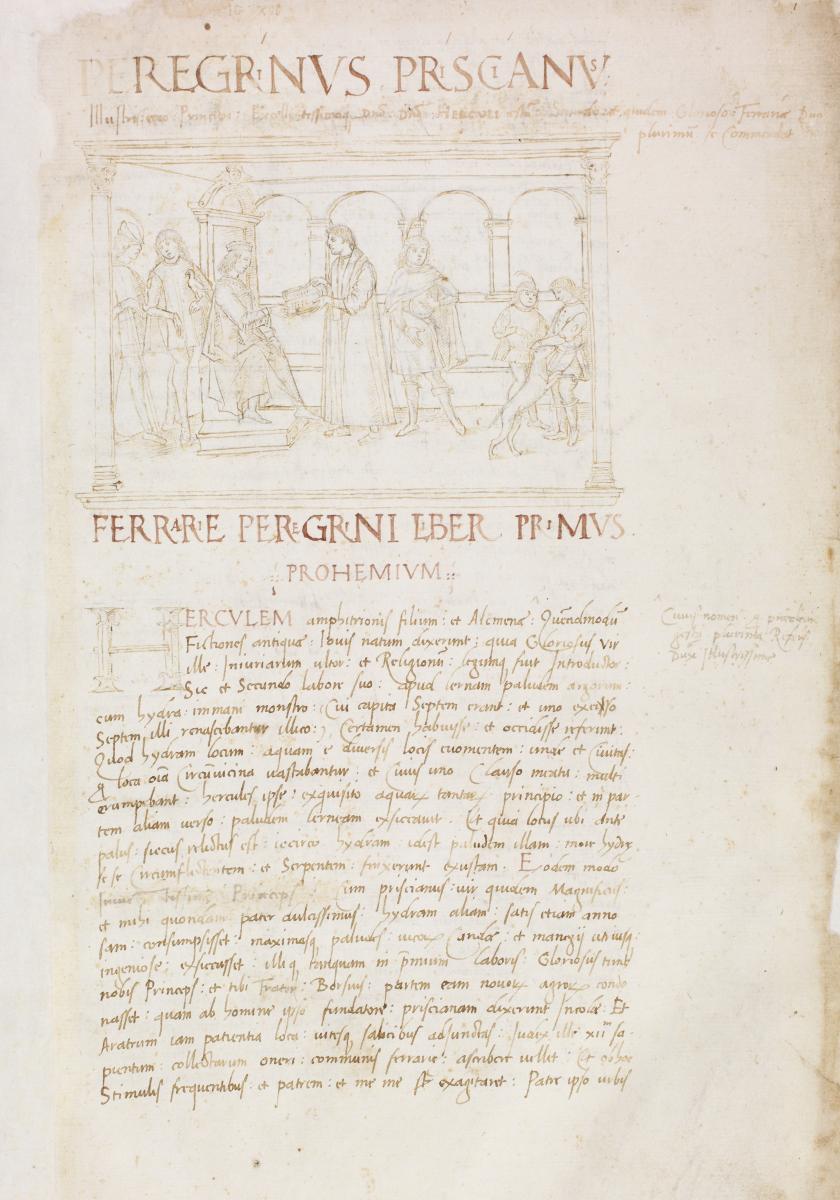 PEREGRINVS PRISCIANVS
Illustrissimo Principi Excellentissimoq Dno Dno HERCVLI
plurimum se Commendat
FERRARIE PEREGRINI LIBER PRIMVS
PROHEMIVM
HERCVLEM amphitrionis filium : et Alcmenæ : Quemdmodū
Fictiones antiquæ : Iouis natum dixerint : quia Gloriosus Vir
ille : Iniuriarum ultor : et Religionū : legumq fuit Introductor :
Sic et Secundo labore suo : apud lernam paludem
cum hydra immani monstro : Cui capita Septem erant : et uno exciso
Septem illi renascibantur illico : Certamen habuisse : et occidisse referunt :
Quod hydram locum : aquam e diuersis locis euomentem : unde et Ciuitas :
& loca oīa Circūuicina uastabantur : et Cuius uno Clauso meatu : multi
erumpebant : hercules ipse : exquisito aquaꝝ tantaꝝ principio : et in par-
tem aliam uerso : paludem lerneam exsiccauit . Et quia locus ubi ante
palus : siccus relictus est : iccirco hydram : idest paludem illam : more hydrę
se se Circumflectentem : et Serpentem : finxerunt exustam . Eodem modō
Princeps : Cum priscianus : uir quidem Magnificus :
et mihi quondam pater dulcissimus : hydram aliam : satis etiam anno
sam : consumpsisset : maximasq paludes : et
ingeniose : exsiccasset : illiq tanquam in p̄mium laboris : Gloriosus tunc
nobis Princeps : et tibi Frater : Borsius : partem eam nouoꝝ agroꝝ condo
nasset : quam ab homine ipso fundatore : priscianam dixerunt Incolæ : Et
Aratrum iam patientia loca : uitesq salicibus adiunctas : ille xii sa-
pientum : collectarum oneri : communis ferrariæ : ascribere uellet : Et ob hoc
Stimulis frequentibus : et patrem : et me exagitaret : Patre ipso urbis
Cuius nomen
gesta plurima
Dux Illustrissime